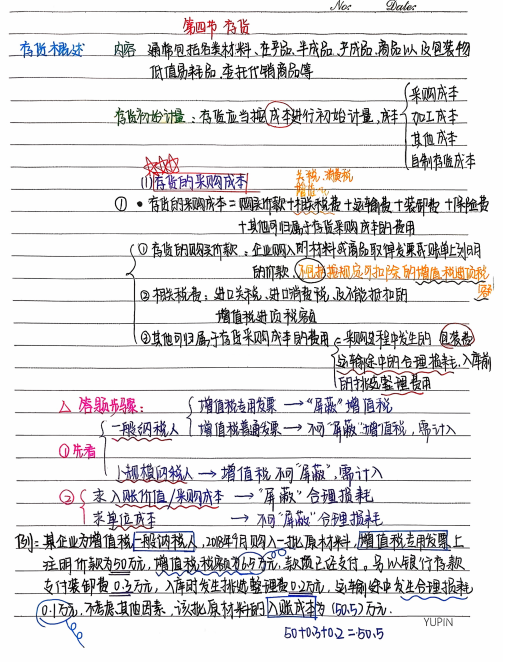 No: Date:
第四节 存货
存货概述 内容 通常包括各类材料、在产品、半成品、产成品、商品以及包装物
低值易耗品、委托代销商品等
存货初始计量：存货应当按成本进行初始计量，成本
采购成本
加工成本
其他成本
自制存货成本
(1)存货的采购成本
关税、消费税
增值税
① • 存货的采购成本 = 购买价款 + 相关税费 + 运输费 + 装卸费 + 保险费
+ 其他可归属于存货采购成本的费用
① 存货的购买价款：企业购入的材料或商品取得发票或账单上列明
的价款，不包括按规定可扣除的增值税进项税
② 相关税费：进口关税、进口消费税、及不能抵扣的
增值税进项税额
③ 其他可归属于存货采购成本的费用
采购过程中发生的包装费
运输途中的合理损耗，入库前
的挑选整理费用
△ 答题步骤：
增值税专用发票 → “屏蔽”增值税
①先看 一般纳税人 增值税普通发票 → 不可“屏蔽”增值税，需计入
小规模纳税人 → 增值税不可“屏蔽”，需计入
② 求入账价值/采购成本 → “屏蔽”合理损耗
求单位成本 → 不可“屏蔽”合理损耗
例：某企业为增值税一般纳税人，2018年9月购入一批原材料，增值税专用发票上
注明价款为50万元，增值税税额为6.5万元，款项已还支付，另以银行存款
支付装卸费0.3万元，入库时发生挑选整理费0.2万元，运输途中发生合理损耗
0.1万元，不考虑其他因素，该批原材料的入账成本为(50.5)万元.
YUPIN
50+0.3+0.2=50.5